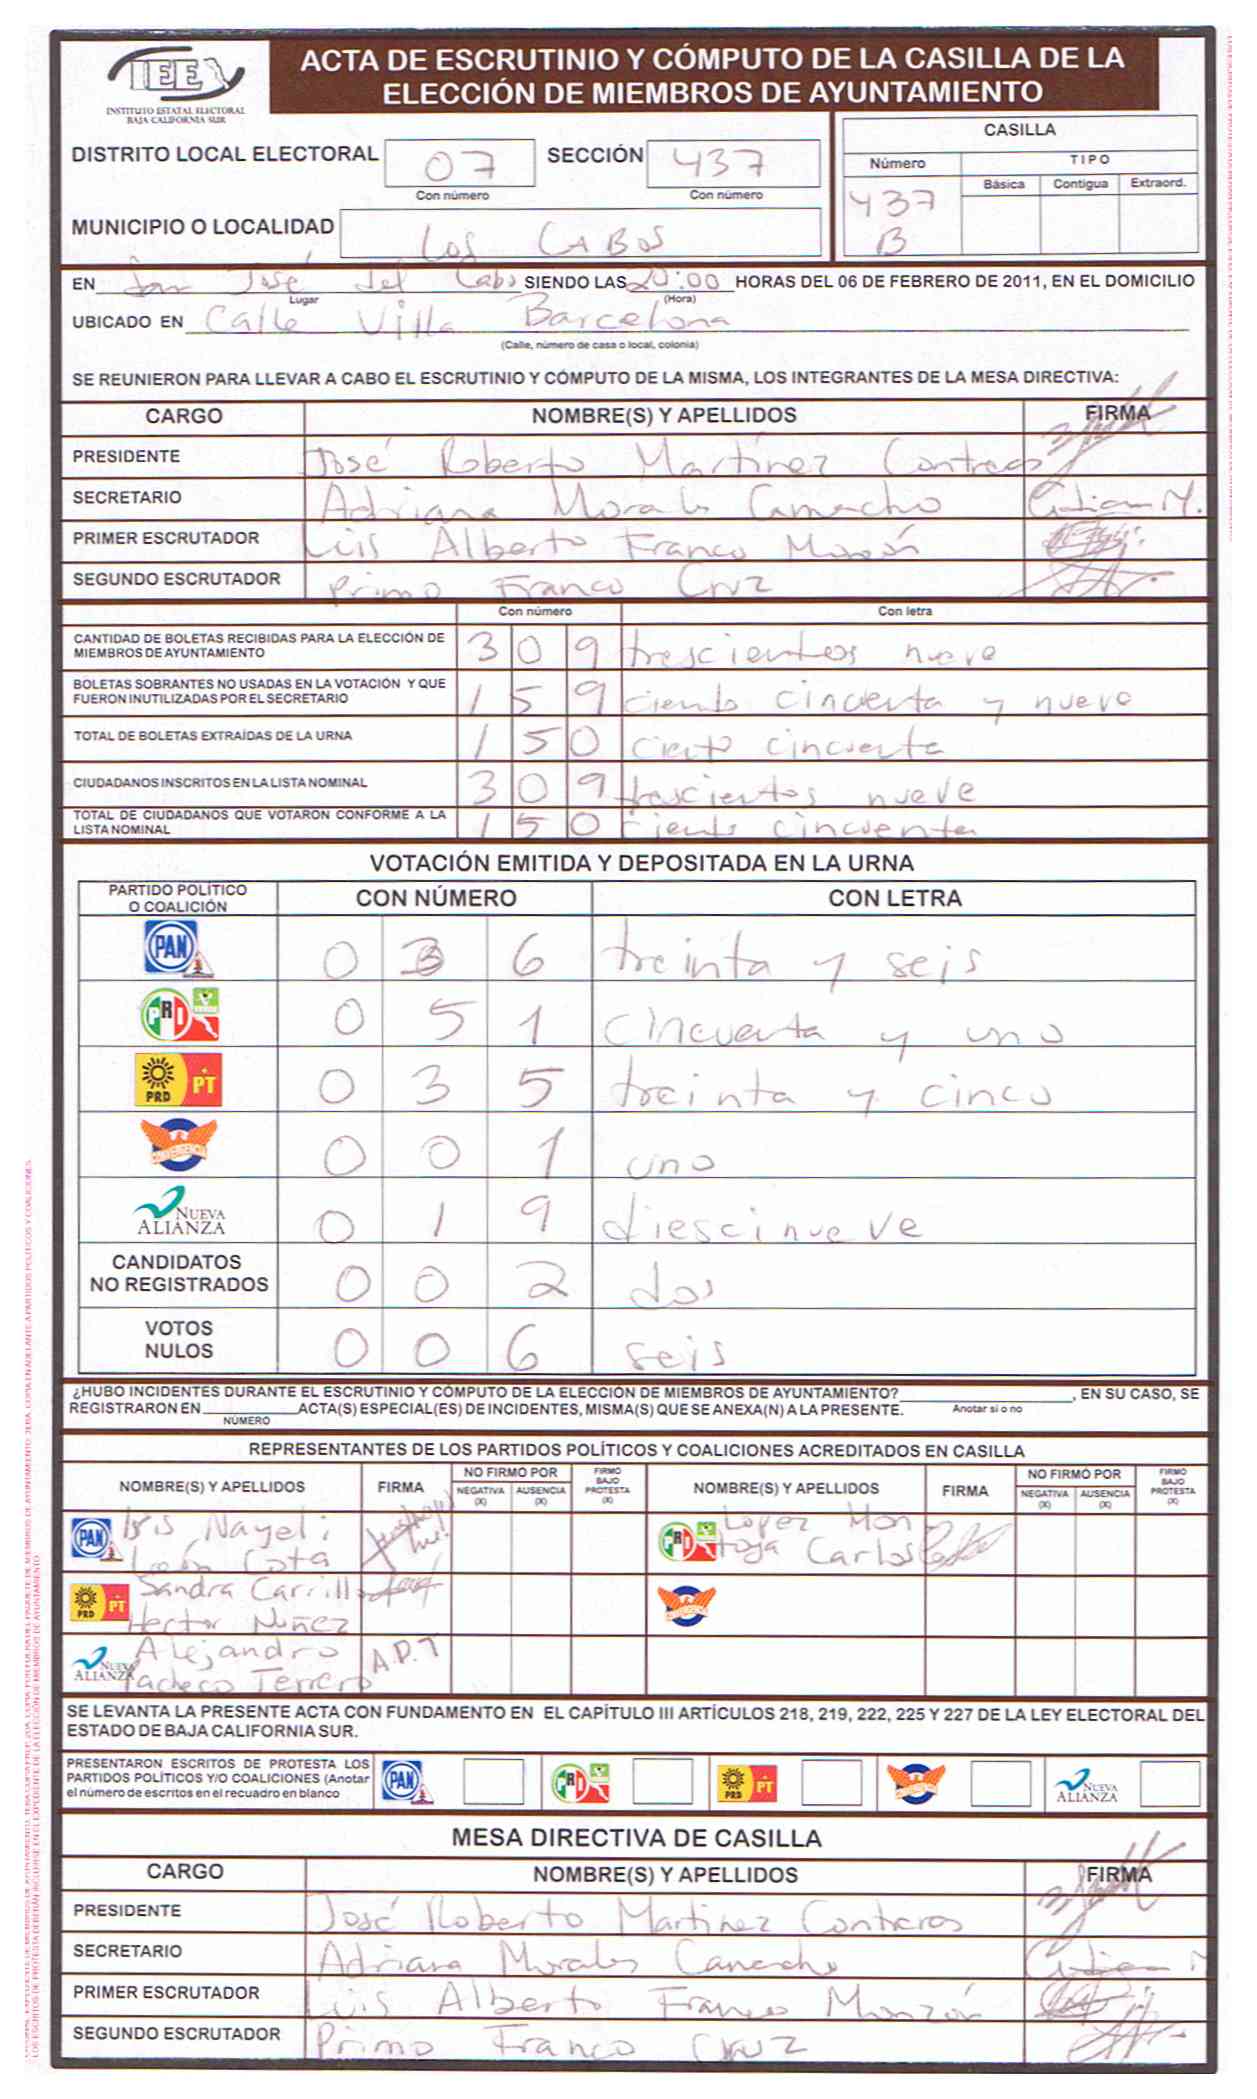 IEE
INSTITUTO ESTATAL ELECTORAL
BAJA CALIFORNIA SUR
ACTA DE ESCRUTINIO Y CÓMPUTO DE LA CASILLA DE LA
ELECCIÓN DE MIEMBROS DE AYUNTAMIENTO
DISTRITO LOCAL ELECTORAL 07 SECCIÓN 437
Con número Con número
MUNICIPIO O LOCALIDAD Los CABOS
CASILLA
Número TIPO
Básica Contigua Extraord.
437
B
EN San José del Cabo SIENDO LAS 20:00 HORAS DEL 06 DE FEBRERO DE 2011, EN EL DOMICILIO
Lugar (Hora)
UBICADO EN Calle Villa Barcelona
(Calle, número de casa o local, colonia)
SE REUNIERON PARA LLEVAR A CABO EL ESCRUTINIO Y CÓMPUTO DE LA MISMA, LOS INTEGRANTES DE LA MESA DIRECTIVA:
CARGO NOMBRE(S) Y APELLIDOS FIRMA
PRESIDENTE José Roberto Martínez Contreras
SECRETARIO Adriana Morales Camacho
PRIMER ESCRUTADOR Luis Alberto Franco Monzón
SEGUNDO ESCRUTADOR Primo Franco Cruz
Con número Con letra
CANTIDAD DE BOLETAS RECIBIDAS PARA LA ELECCIÓN DE
MIEMBROS DE AYUNTAMIENTO 3 0 9 trescientos nueve
BOLETAS SOBRANTES NO USADAS EN LA VOTACIÓN Y QUE
FUERON INUTILIZADAS POR EL SECRETARIO 1 5 9 ciento cincuenta y nueve
TOTAL DE BOLETAS EXTRAÍDAS DE LA URNA 1 5 0 ciento cincuenta
CIUDADANOS INSCRITOS EN LA LISTA NOMINAL 3 0 9 trescientos nueve
TOTAL DE CIUDADANOS QUE VOTARON CONFORME A LA
LISTA NOMINAL 1 5 0 ciento cincuenta
VOTACIÓN EMITIDA Y DEPOSITADA EN LA URNA
PARTIDO POLÍTICO
O COALICIÓN CON NÚMERO CON LETRA
PAN 0 3 6 treinta y seis
PRI 0 5 1 cincuenta y uno
PRD PT 0 3 5 treinta y cinco
CONVERGENCIA 0 0 1 uno
NUEVA ALIANZA 0 1 9 diescinueve
CANDIDATOS
NO REGISTRADOS 0 0 2 dos
VOTOS
NULOS 0 0 6 seis
¿HUBO INCIDENTES DURANTE EL ESCRUTINIO Y CÓMPUTO DE LA ELECCIÓN DE MIEMBROS DE AYUNTAMIENTO? , EN SU CASO, SE
REGISTRARON EN ACTA(S) ESPECIAL(ES) DE INCIDENTES, MISMA(S) QUE SE ANEXA(N) A LA PRESENTE. Anotar si o no
NÚMERO
REPRESENTANTES DE LOS PARTIDOS POLÍTICOS Y COALICIONES ACREDITADOS EN CASILLA
NOMBRE(S) Y APELLIDOS FIRMA NO FIRMÓ POR FIRMÓ BAJO PROTESTA (X) NOMBRE(S) Y APELLIDOS FIRMA NO FIRMÓ POR FIRMÓ BAJO PROTESTA (X)
NEGATIVA (X) AUSENCIA (X) NEGATIVA (X) AUSENCIA (X)
PAN Iris Nayeli
León Cota
PRI Lopez Mon
toya Carlos
PRD PT Sandra Carrillo
Hector Nuñez
CONVERGENCIA
NUEVA ALIANZA Alejandro
Pacheco Terrero A.P.T
SE LEVANTA LA PRESENTE ACTA CON FUNDAMENTO EN EL CAPÍTULO III ARTÍCULOS 218, 219, 222, 225 Y 227 DE LA LEY ELECTORAL DEL
ESTADO DE BAJA CALIFORNIA SUR.
PRESENTARON ESCRITOS DE PROTESTA LOS
PARTIDOS POLÍTICOS Y/O COALICIONES (Anotar
el número de escritos en el recuadro en blanco
PAN PRI PRD PT CONVERGENCIA NUEVA ALIANZA
MESA DIRECTIVA DE CASILLA
CARGO NOMBRE(S) Y APELLIDOS FIRMA
PRESIDENTE José Roberto Martinez Contreras
SECRETARIO Adriana Morales Camacho
PRIMER ESCRUTADOR Luis Alberto Franco Monzón
SEGUNDO ESCRUTADOR Primo Franco Cruz